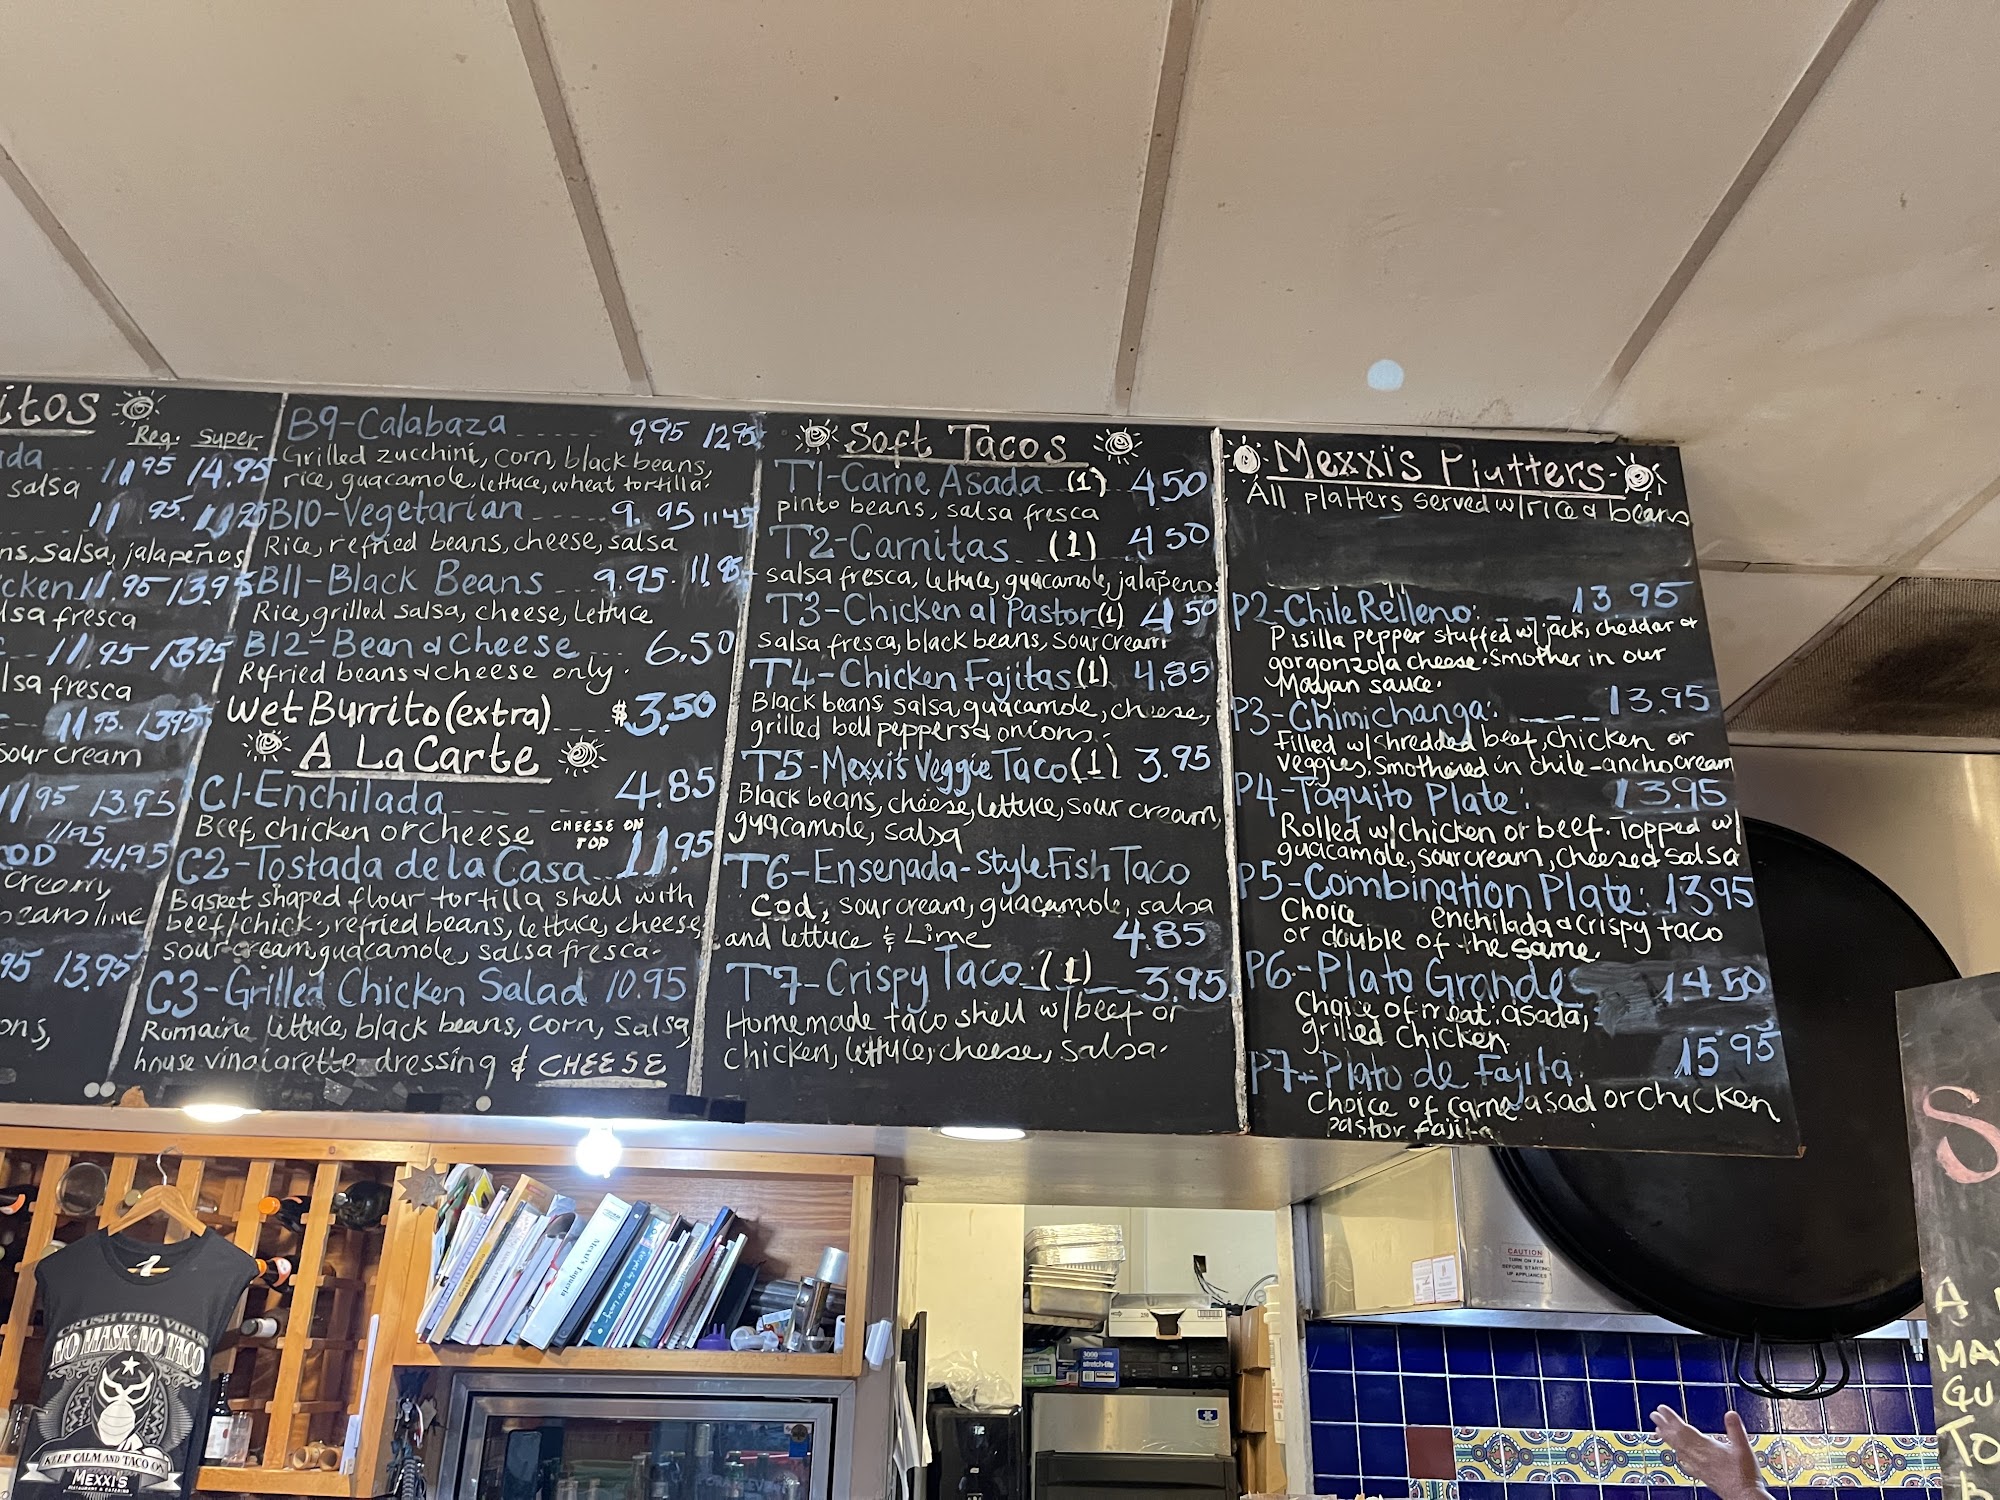 itos
Reg. Super
ada 11.95 14.95
salsa
11.95
ns, salsa, jalapeños
icken 11.95 13.95
lsa fresca
11.95 13.95
lsa fresca
11.95 13.95
sour cream
11.95 13.95
11.95
COD 14.95
cream,
beans lime
95 13.95
ons,
B9-Calabaza 9.95 12.95
Grilled zucchini, corn, black beans,
rice, guacamole, lettuce, wheat tortilla.
B10-Vegetarian 9.95 11.45
Rice, refried beans, cheese, salsa
B11-Black Beans 9.95 11.95
Rice, grilled salsa, cheese, lettuce
B12-Bean & Cheese 6.50
Refried beans & cheese only.
Wet Burrito (extra) $3.50
A La Carte
C1-Enchilada 4.85
Beef, chicken or cheese CHEESE ON
TOP
C2-Tostada de la Casa 11.95
Basket shaped flour tortilla shell with
beef/chick., refried beans, lettuce, cheese,
sour cream, guacamole, salsa fresca.
C3-Grilled Chicken Salad 10.95
Romaine lettuce, black beans, corn, salsa,
house vinaigrette dressing & CHEESE
Soft Tacos
T1-Carne Asada (1) 4.50
pinto beans, salsa fresca
T2-Carnitas (1) 4.50
salsa fresca, lettuce, guacamole, jalapeños
T3-Chicken al Pastor (1) 4.50
salsa fresca, black beans, sour cream
T4-Chicken Fajitas (1) 4.85
Black beans, salsa, guacamole, cheese,
grilled bell peppers & onions.
T5-Mexxi's Veggie Taco (1) 3.95
Black beans, cheese, lettuce, sour cream,
guacamole, salsa
T6-Ensenada-Style Fish Taco
Cod, sour cream, guacamole, salsa
and lettuce & Lime 4.85
T7-Crispy Taco (1) 3.95
Homemade taco shell w/beef or
chicken, lettuce, cheese, salsa.
Mexxi's Plutters
All platters served w/rice & beans
P2-Chile Relleno: 13.95
Pisilla pepper stuffed w/jack, cheddar &
gorgonzola cheese. Smother in our
Mayan sauce.
P3-Chimichanga: 13.95
Filled w/shredded beef, chicken or
veggies. Smothered in chile-ancho cream
P4-Taquito Plate: 13.95
Rolled w/chicken or beef. Topped w/
guacamole, sour cream, cheese & salsa
P5-Combination Plate: 13.95
Choice enchilada & crispy taco
or double of the same.
P6-Plato Grande 14.50
Choice of meat: asada,
grilled chicken
P7-Plato de Fajita 15.95
Choice of carne asad or chicken
pastor fajita
CRUSH THE VIRUS
NO MASK·NO TACO
KEEP CALM AND TACO ON
MEXXI'S
RESTAURANT & CATERING
Mexxi's Taqueria
CAUTION
TURN ON FAN
BEFORE STARTING
UP APPLIANCES
3000
stretch-tite
S
A
MA
GU
TO